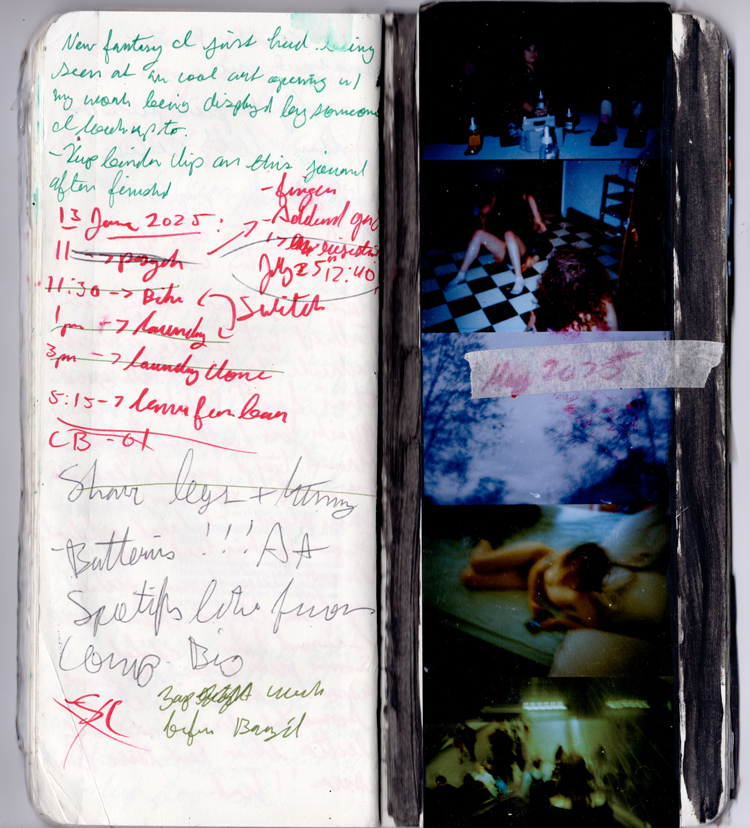 New fantasy I just had. being
seen at an cool art opening w/
my work being displayd by someone
I look up to.
- Keep binder clip on this journal
after finished
- finger
13 June 2025:
11 -->
July 25th 12:40
11:30 -> Bike
Switch
1pm -> laundry
3pm -> laundry done
5:15 -> leave for
CB - 61
Shave legs +
- Batteries !!! AA
Spotify
Comp. Bio
week
before Brazil
May 2025